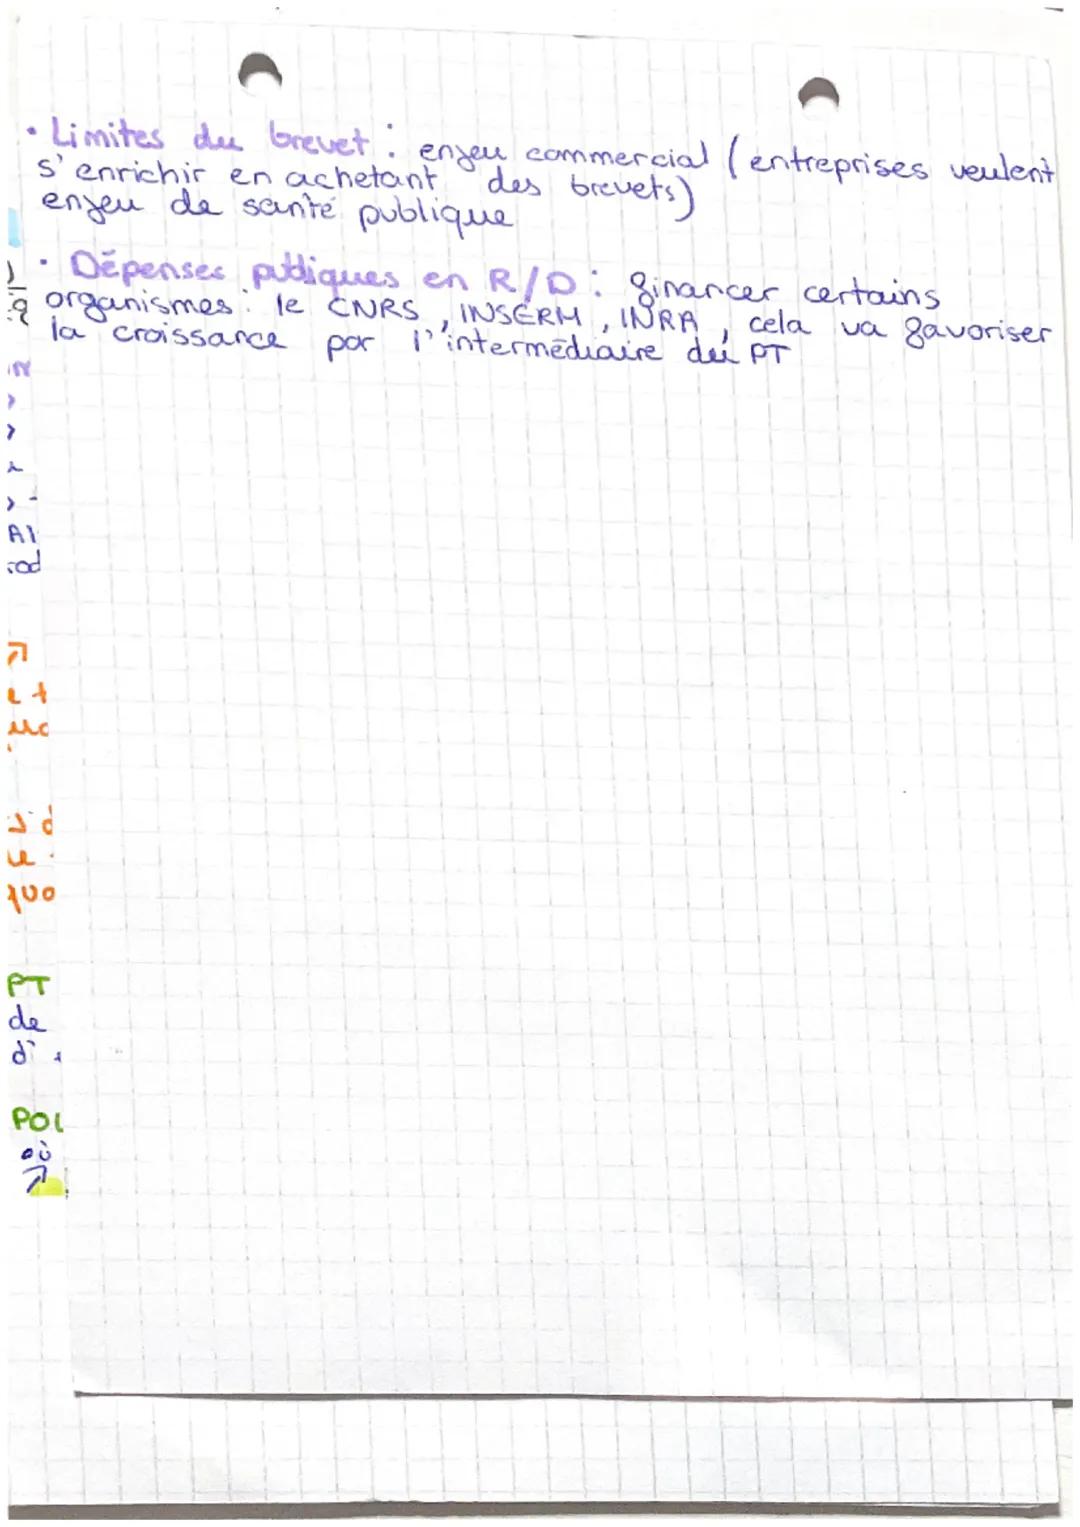 • Limites du brevet : enjeu commercial (entreprises veulent
s'enrichir en achetant des brevets)
enjeu de santé publique
• Dépenses publiques en R/D : financer certains
organismes : le CNRS, INSERM, INRA, cela va favoriser
la croissance par l'intermédiaire du PT
PT
de
d'
POL
où